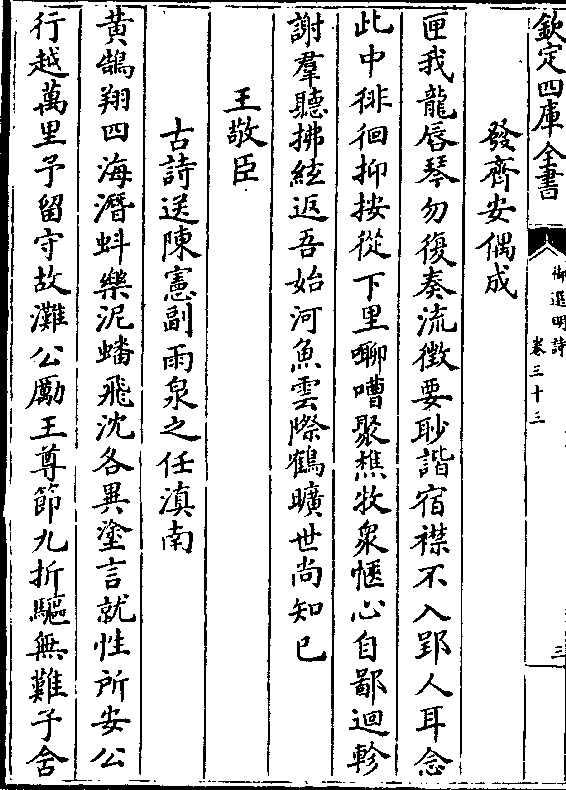 欽定四庫全書
御選明詩
卷三十三
三
發齊安偶成
匣我龍唇琴勿復奏流徵要眇諧宿襟不入郢人耳念
此中徘徊抑按從下里嘲嘈聚樵牧衆愜心自鄙迴軫
謝羣聽拂絃返吾始河魚雲際鶴曠世尚知己
王敬臣
古詩送陳憲副雨泉之任滇南
黃鵠翔四海潛蚪樂泥蟠飛沈各異塗言就性所安公
行越萬里予留守故灘公勵王尊節九折驅無難子舍